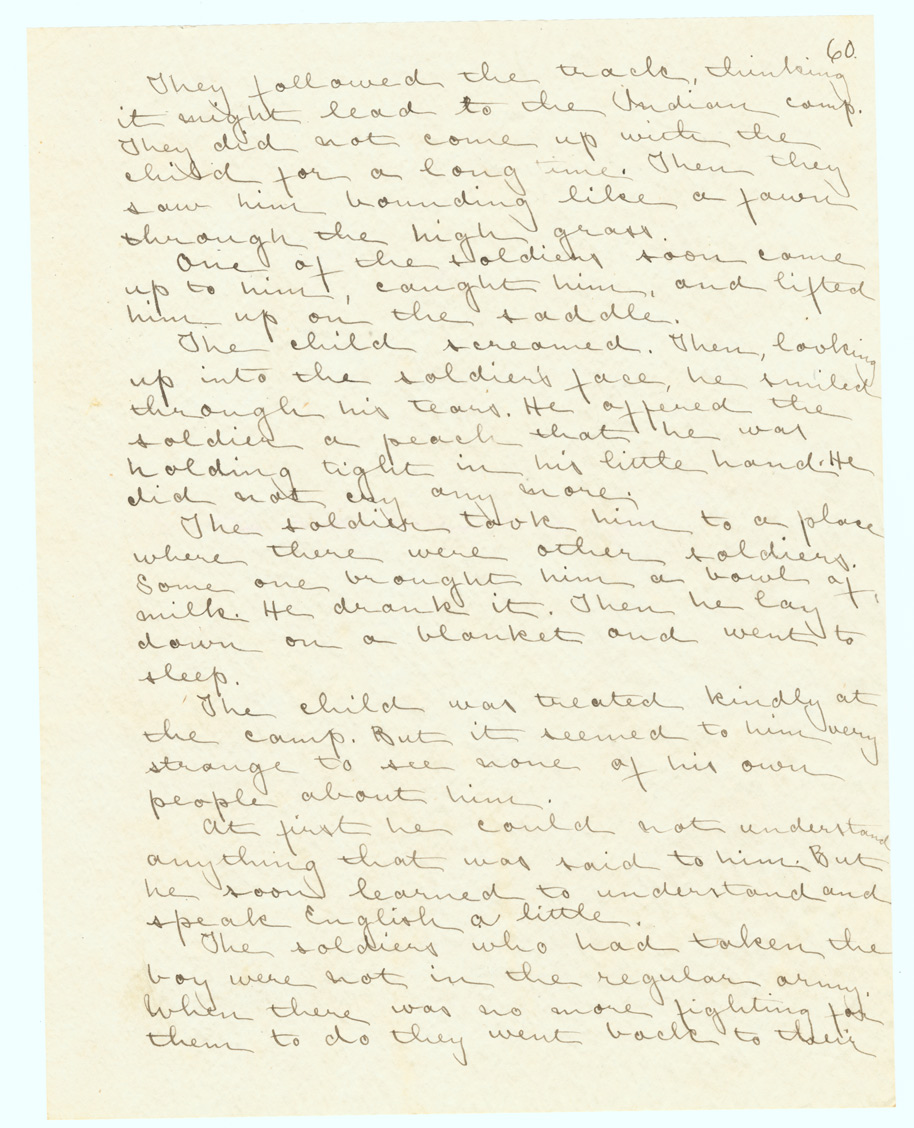 60.
They followed the track, thinking
it might lead to the Indian camp.
They did not come up with the
child for a long time. Then they
saw him bounding like a fawn
through the high grass.
One of the soldiers soon came
up to him, caught him, and lifted
him up on the saddle.
The child screamed. Then, looking
up into the soldier's face, he smiled
through his tears. He offered the
soldier a peach that he was
holding tight in his little hand. He
did not cry any more.
The soldier took him to a place
where there were other soldiers.
Some one brought him a bowl of
milk. He drank it. Then he lay
down on a blanket and went to
sleep.
The child was treated kindly at
the camp. But it seemed to him very
strange to see none of his own
people about him.
At first he could not understand
anything that was said to him. But
he soon learned to understand and
speak English a little.
The soldiers who had taken the
boy were not in the regular army.
When there was no more fighting for
them to do they went back to their